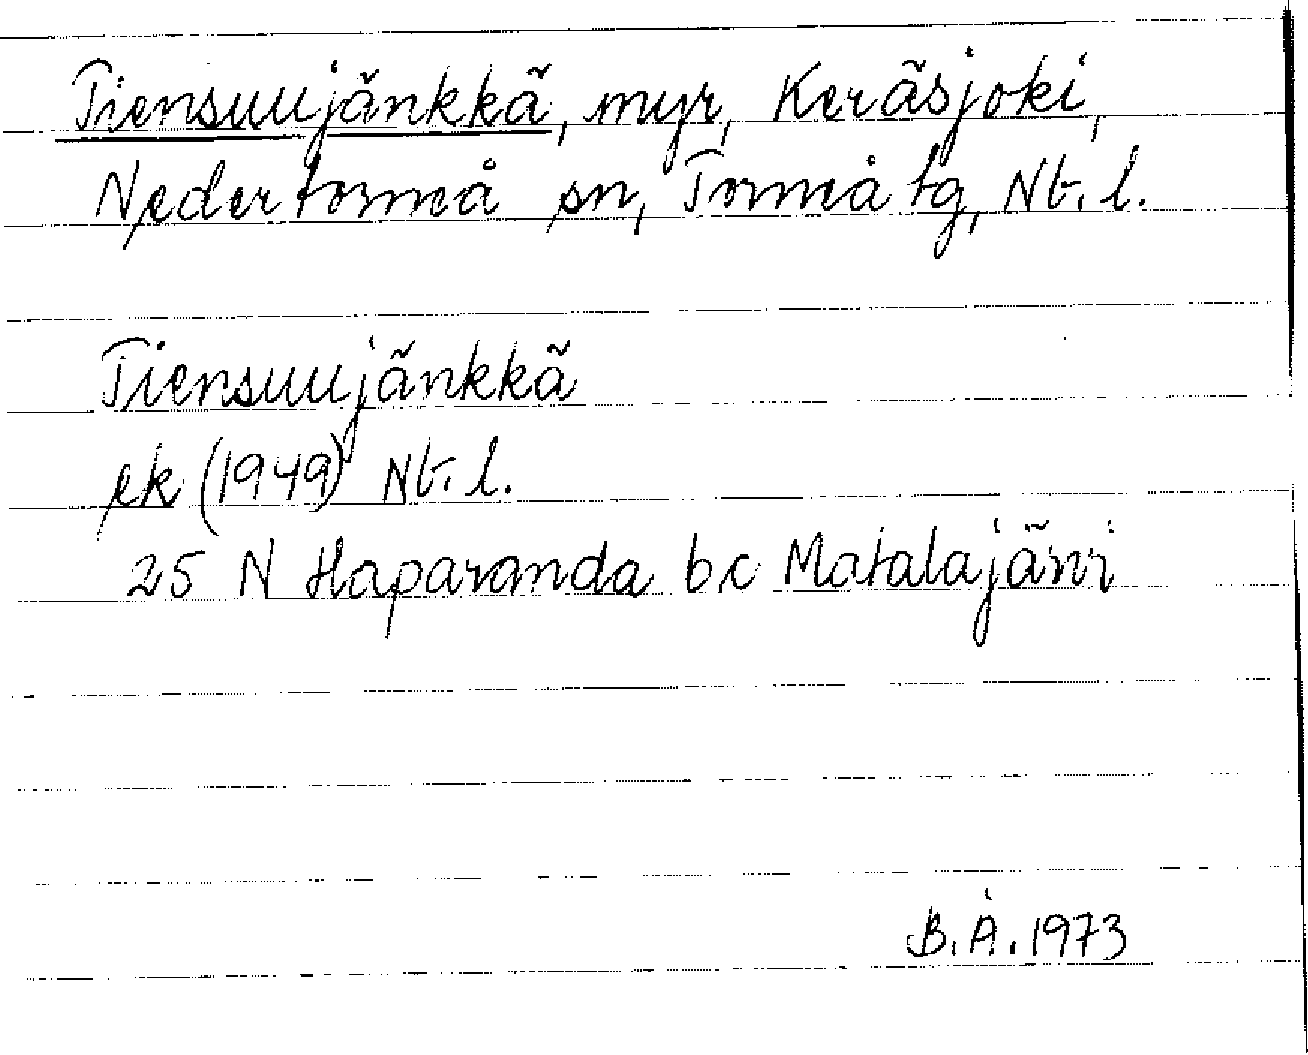 Tiensuujänkkä, myr, Keräsjoki,
Nedertorneå sn, Torneå tg, Nb. l.
Tiensuujänkkä
ek (1949) Nb. l.
25 N Haparanda b c Matalajärvi
B. Å. 1973